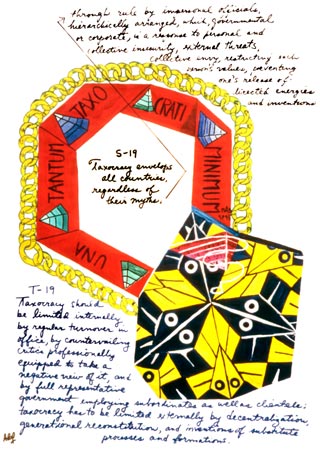 through rule by impersonal officials,
hierarchically arranged, which, governmental
or corporate, is a response to personal and
collective insecurity, external threats,
collective envy, restricting each
person's values, preventing
one's release of
directed energies
and inventions
TAXO
CRATI
MINIMUM
TANTUM
UNA
S-19
Taxocracy envelops
all countries,
regardless of
their myths.
T-19
Taxocracy should
be limited internally
by regular turnover in
office, by countervailing
critics professionally
equipped to take a
negative view of it, and
by full representative
government employing subordinates as well as clientele;
taxocracy has to be limited externally by decentralization,
generational reconstitution, and inventions of substitute
processes and formations.